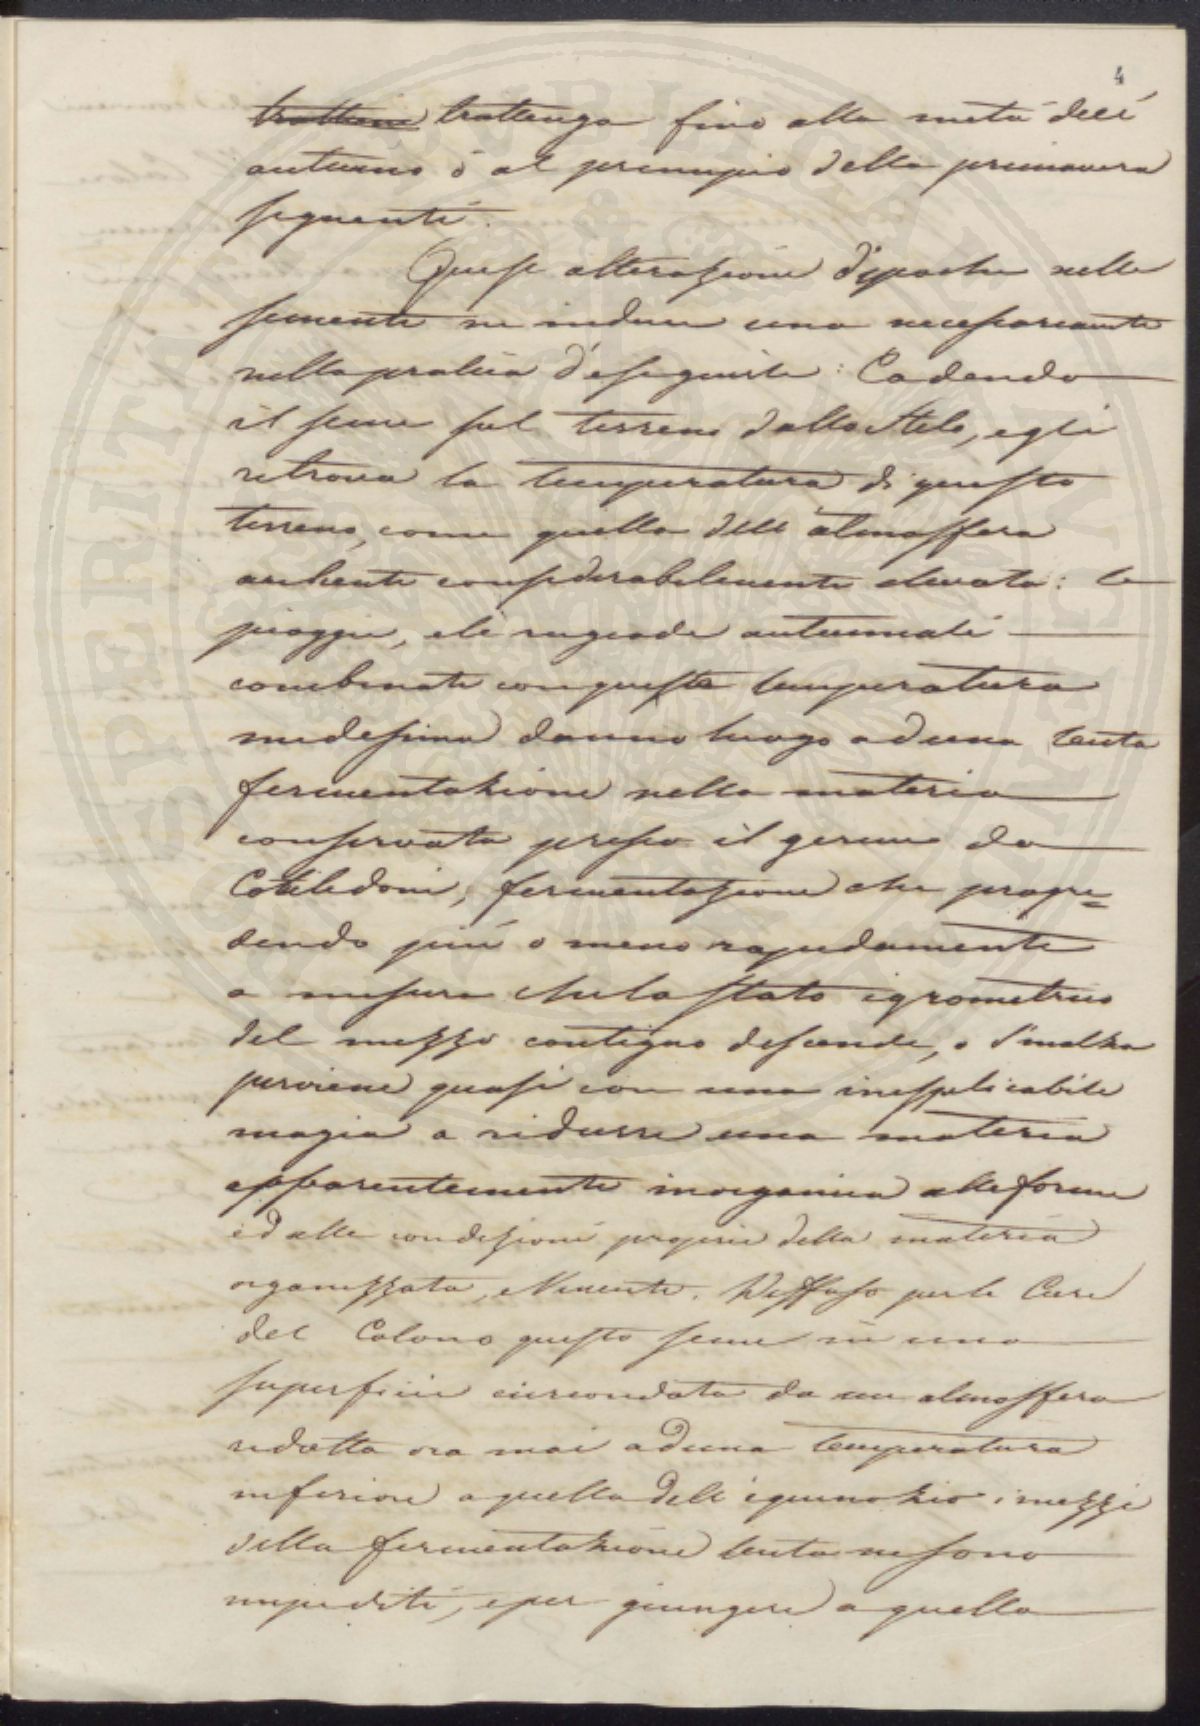 4
trattiene trattenga fino alla metà dell'
autunno ò al principio della primavera
seguente.
Quest alterazione d'epoche nelle
semente ne induce una necessariamente
nella pratica d'eseguirle: Cadendo
il seme sul terreno dallo Stelo, egli
ritrova la temperatura di questo
terreno, come quella dell' atmosfera
ambiente considerabilmente elevata: le
pioggie, e le rugiade autunnali
combinate con questa temperatura
medesima danno luogo ad una lenta
fermentazione nella materia
conservata presso il germe da
Cotiledoni, fermentazione che progre=
dendo più o meno rapidamente
a misura che lo stato igrometrico
del mezzo contiguo discende, o s'inalza
perviene quasi con una inesplicabile
magia a ridurre una materia
apparentemente inorganica alle forme
ed alle condizioni proprie della materia
organizzata, e Vivente. Diffuso per le Cure
del Colono questo seme in una
superficie circondata da un atmosfera
ridotta ora mai ad una temperatura
inferiore a quella dell' equinozio i mezzi
della fermentazione lenta ne sono
impediti, e per giungere a quella
SPERITAT PVBLICAE AVGENDAE